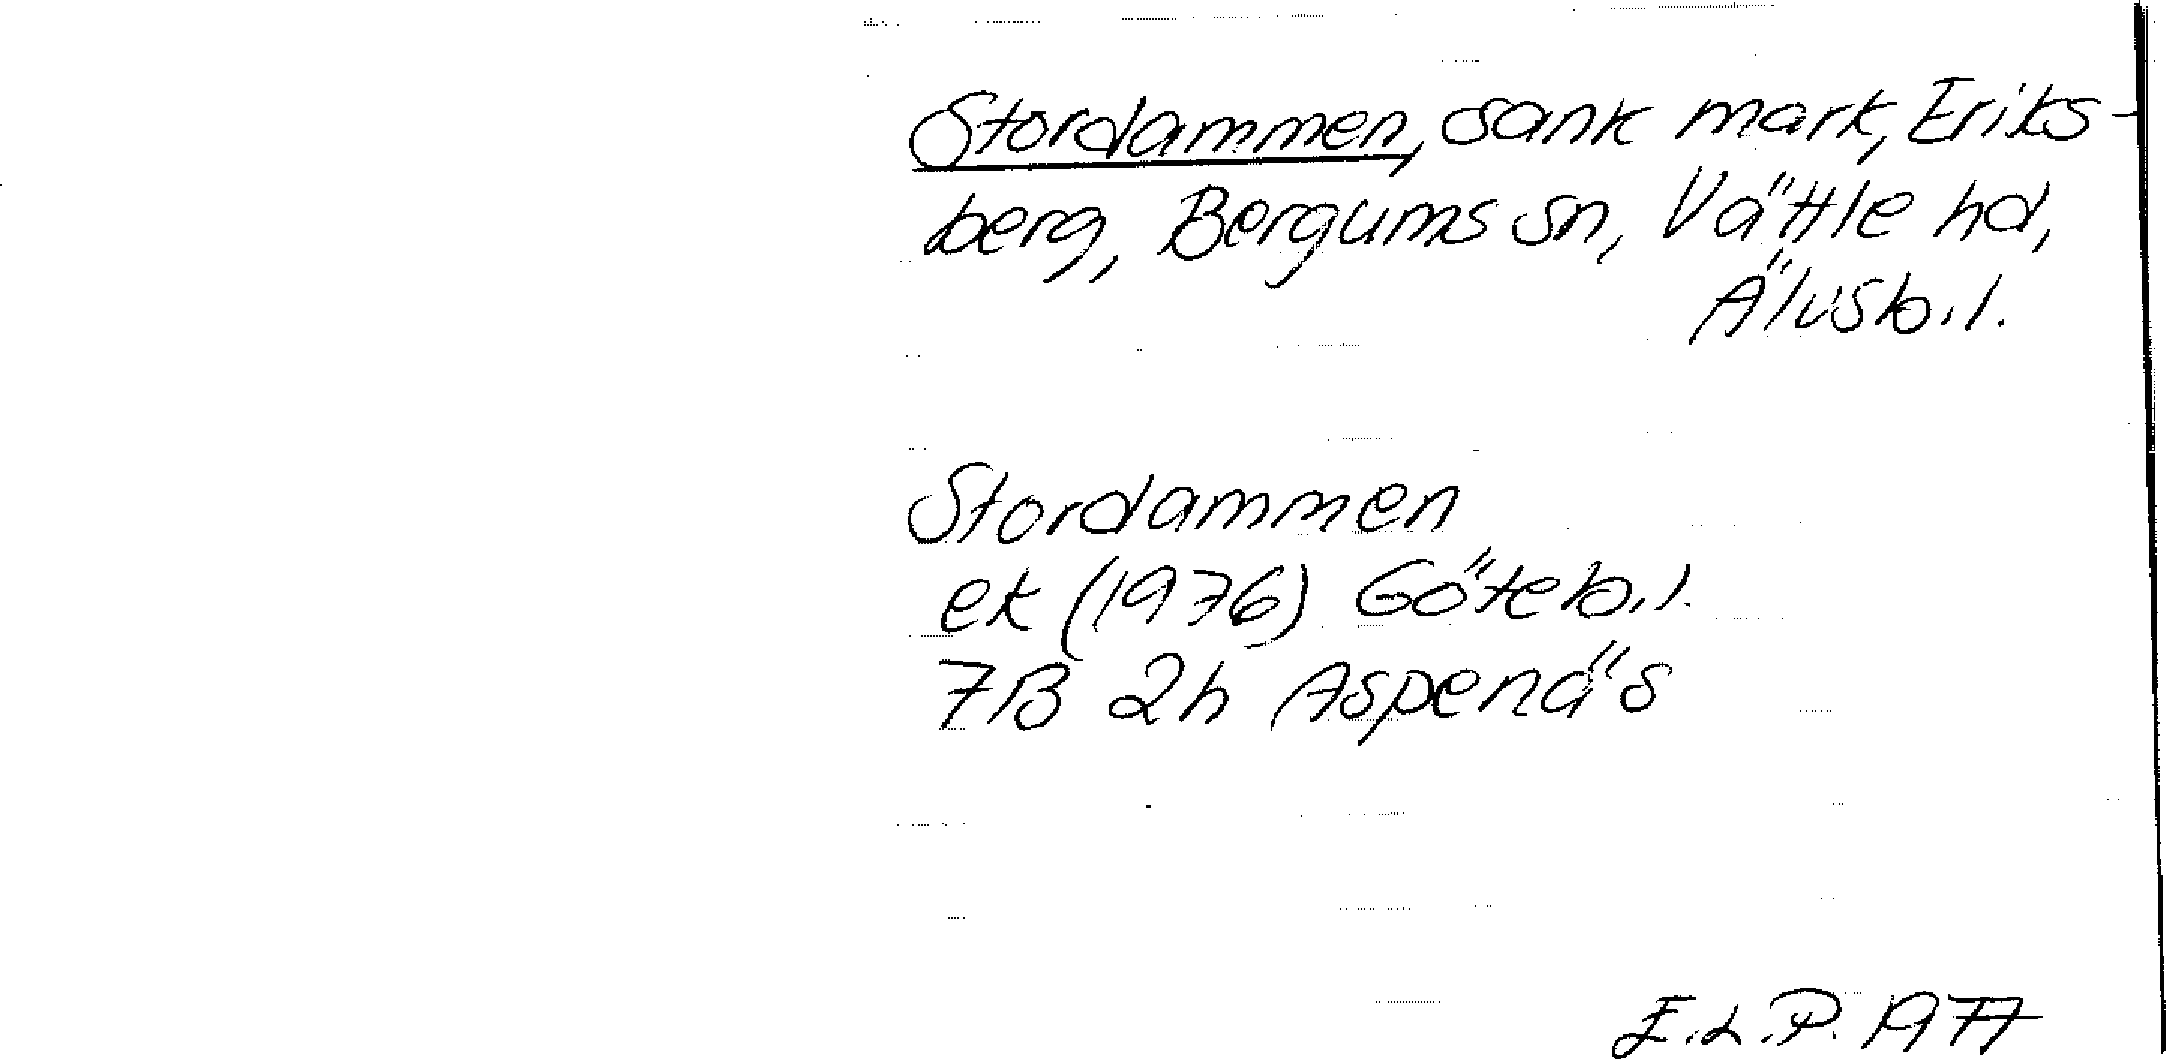 Stordammen, sank mark, Eriks-
berg, Bergums sn, Vättle hd,
Älvsb.l.
Stordammen
ek (1976) Göteb.l.
7B 2h Aspenäs
E.L.P. 1977